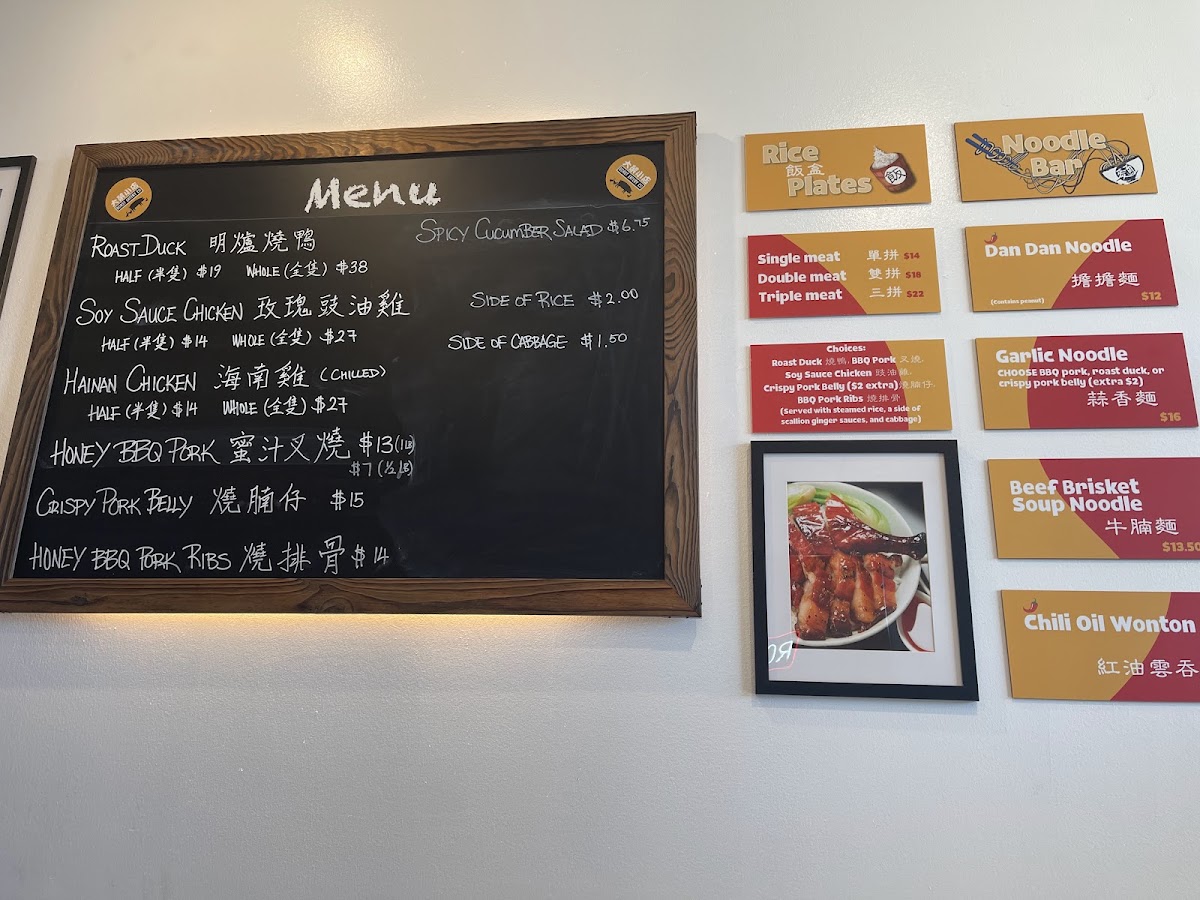 Menu
ROAST DUCK 明爐燒鴨
HALF (半隻) $19 WHOLE (全隻) $38
SOY SAUCE CHICKEN 玫瑰豉油雞
HALF (半隻) $14 WHOLE (全隻) $27
HAINAN CHICKEN 海南雞 (CHILLED)
HALF (半隻) $14 WHOLE (全隻) $27
HONEY BBQ PORK 蜜汁叉燒 $13 (1LB)
$7 (½ LB)
CRISPY PORK BELLY 燒腩仔 $15
HONEY BBQ PORK RIBS 燒排骨 $14
SPICY CUCUMBER SALAD $6.75
SIDE OF RICE $2.00
SIDE OF CABBAGE $1.50
Rice
飯盒
Plates
飯
Single meat 單拼 $14
Double meat 雙拼 $18
Triple meat 三拼 $22
Choices:
Roast Duck 燒鴨, BBQ Pork 叉燒,
Soy Sauce Chicken 豉油雞,
Crispy Pork Belly ($2 extra) 燒腩仔,
BBQ Pork Ribs 燒排骨
(Served with steamed rice, a side of
scallion ginger sauces, and cabbage)
Noodle
Bar
Dan Dan Noodle
擔擔麵
(Contains peanut)
$12
Garlic Noodle
CHOOSE BBQ pork, roast duck, or
crispy pork belly (extra $2)
蒜香麵
$16
Beef Brisket
Soup Noodle
牛腩麵
$13.50
Chili Oil Wonton
紅油雲吞